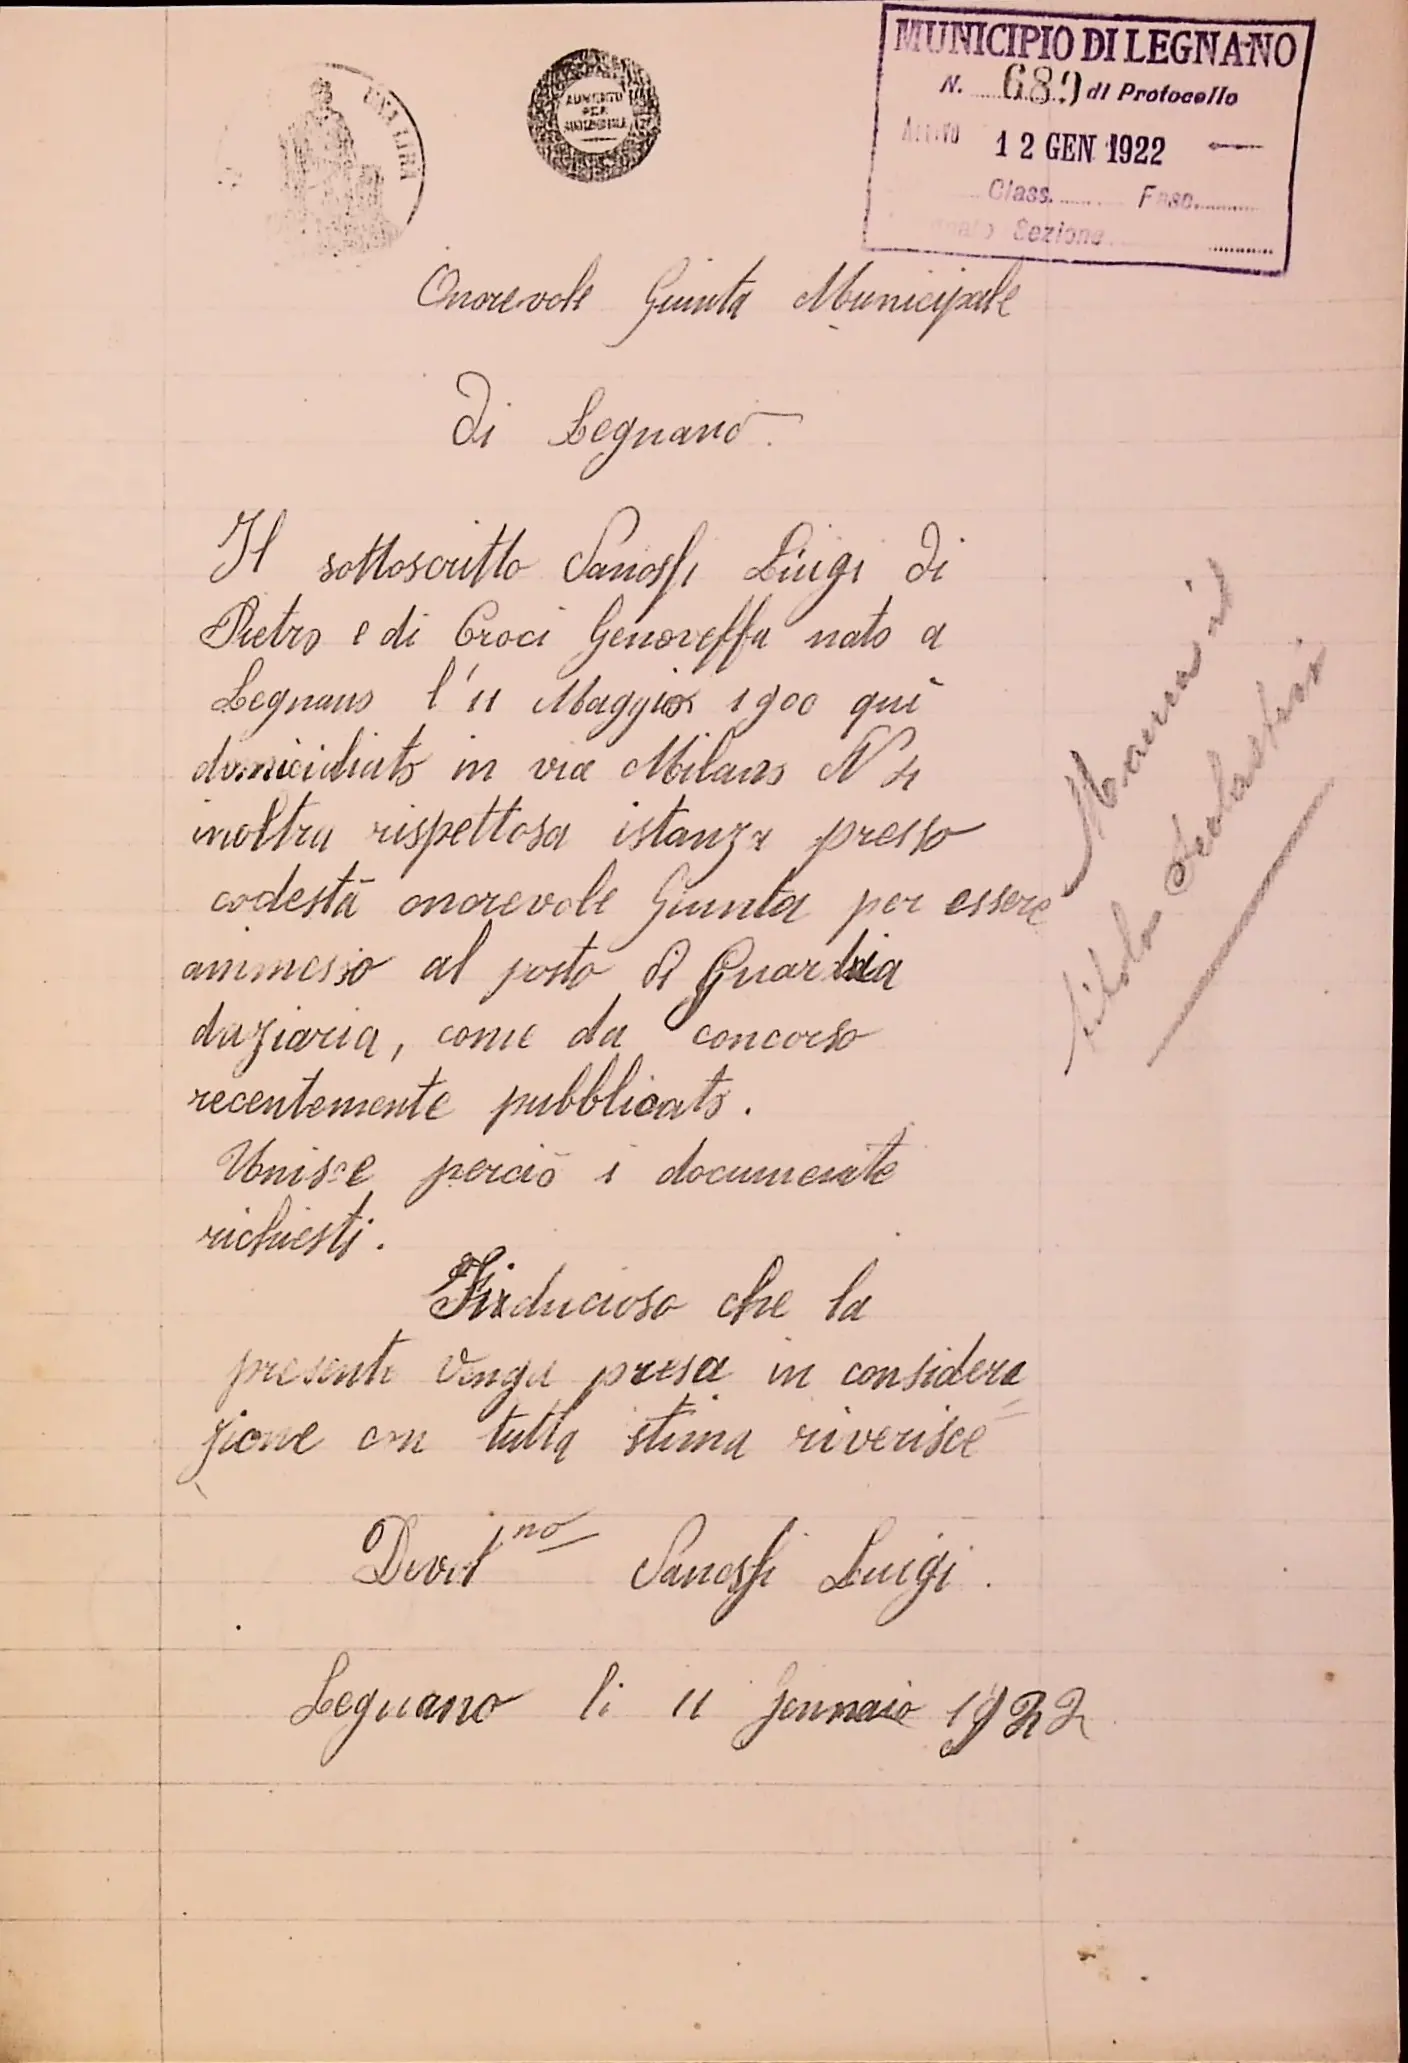 UNA LIRA
AUMENTO
PER
MUNICIPIO DI LEGNANO
N. 689 di Protocollo
Arrivo 12 GEN 1922
Class. Fasc.
Sezione
Onorevole Giunta Municipale
di Legnano.
Il sottoscritto Luigi di
Pietro e di Croci Genoveffa nato a
Legnano l'11 Maggio 1900 quì
domiciliato in via Milano N 4
inoltra rispettosa istanza presso
codesta onorevole Giunta per essere
ammesso al posto di Guardia
daziaria, come da concorso
recentemente pubblicato.
Unisce perciò i documente
richiesti.
Fiducioso che la
presente venga presa in considera
zione con tutta stima riverisce
Devot mo Luigi.
Legnano li 11 Gennaio 1922
Manca il
titolo scolastico